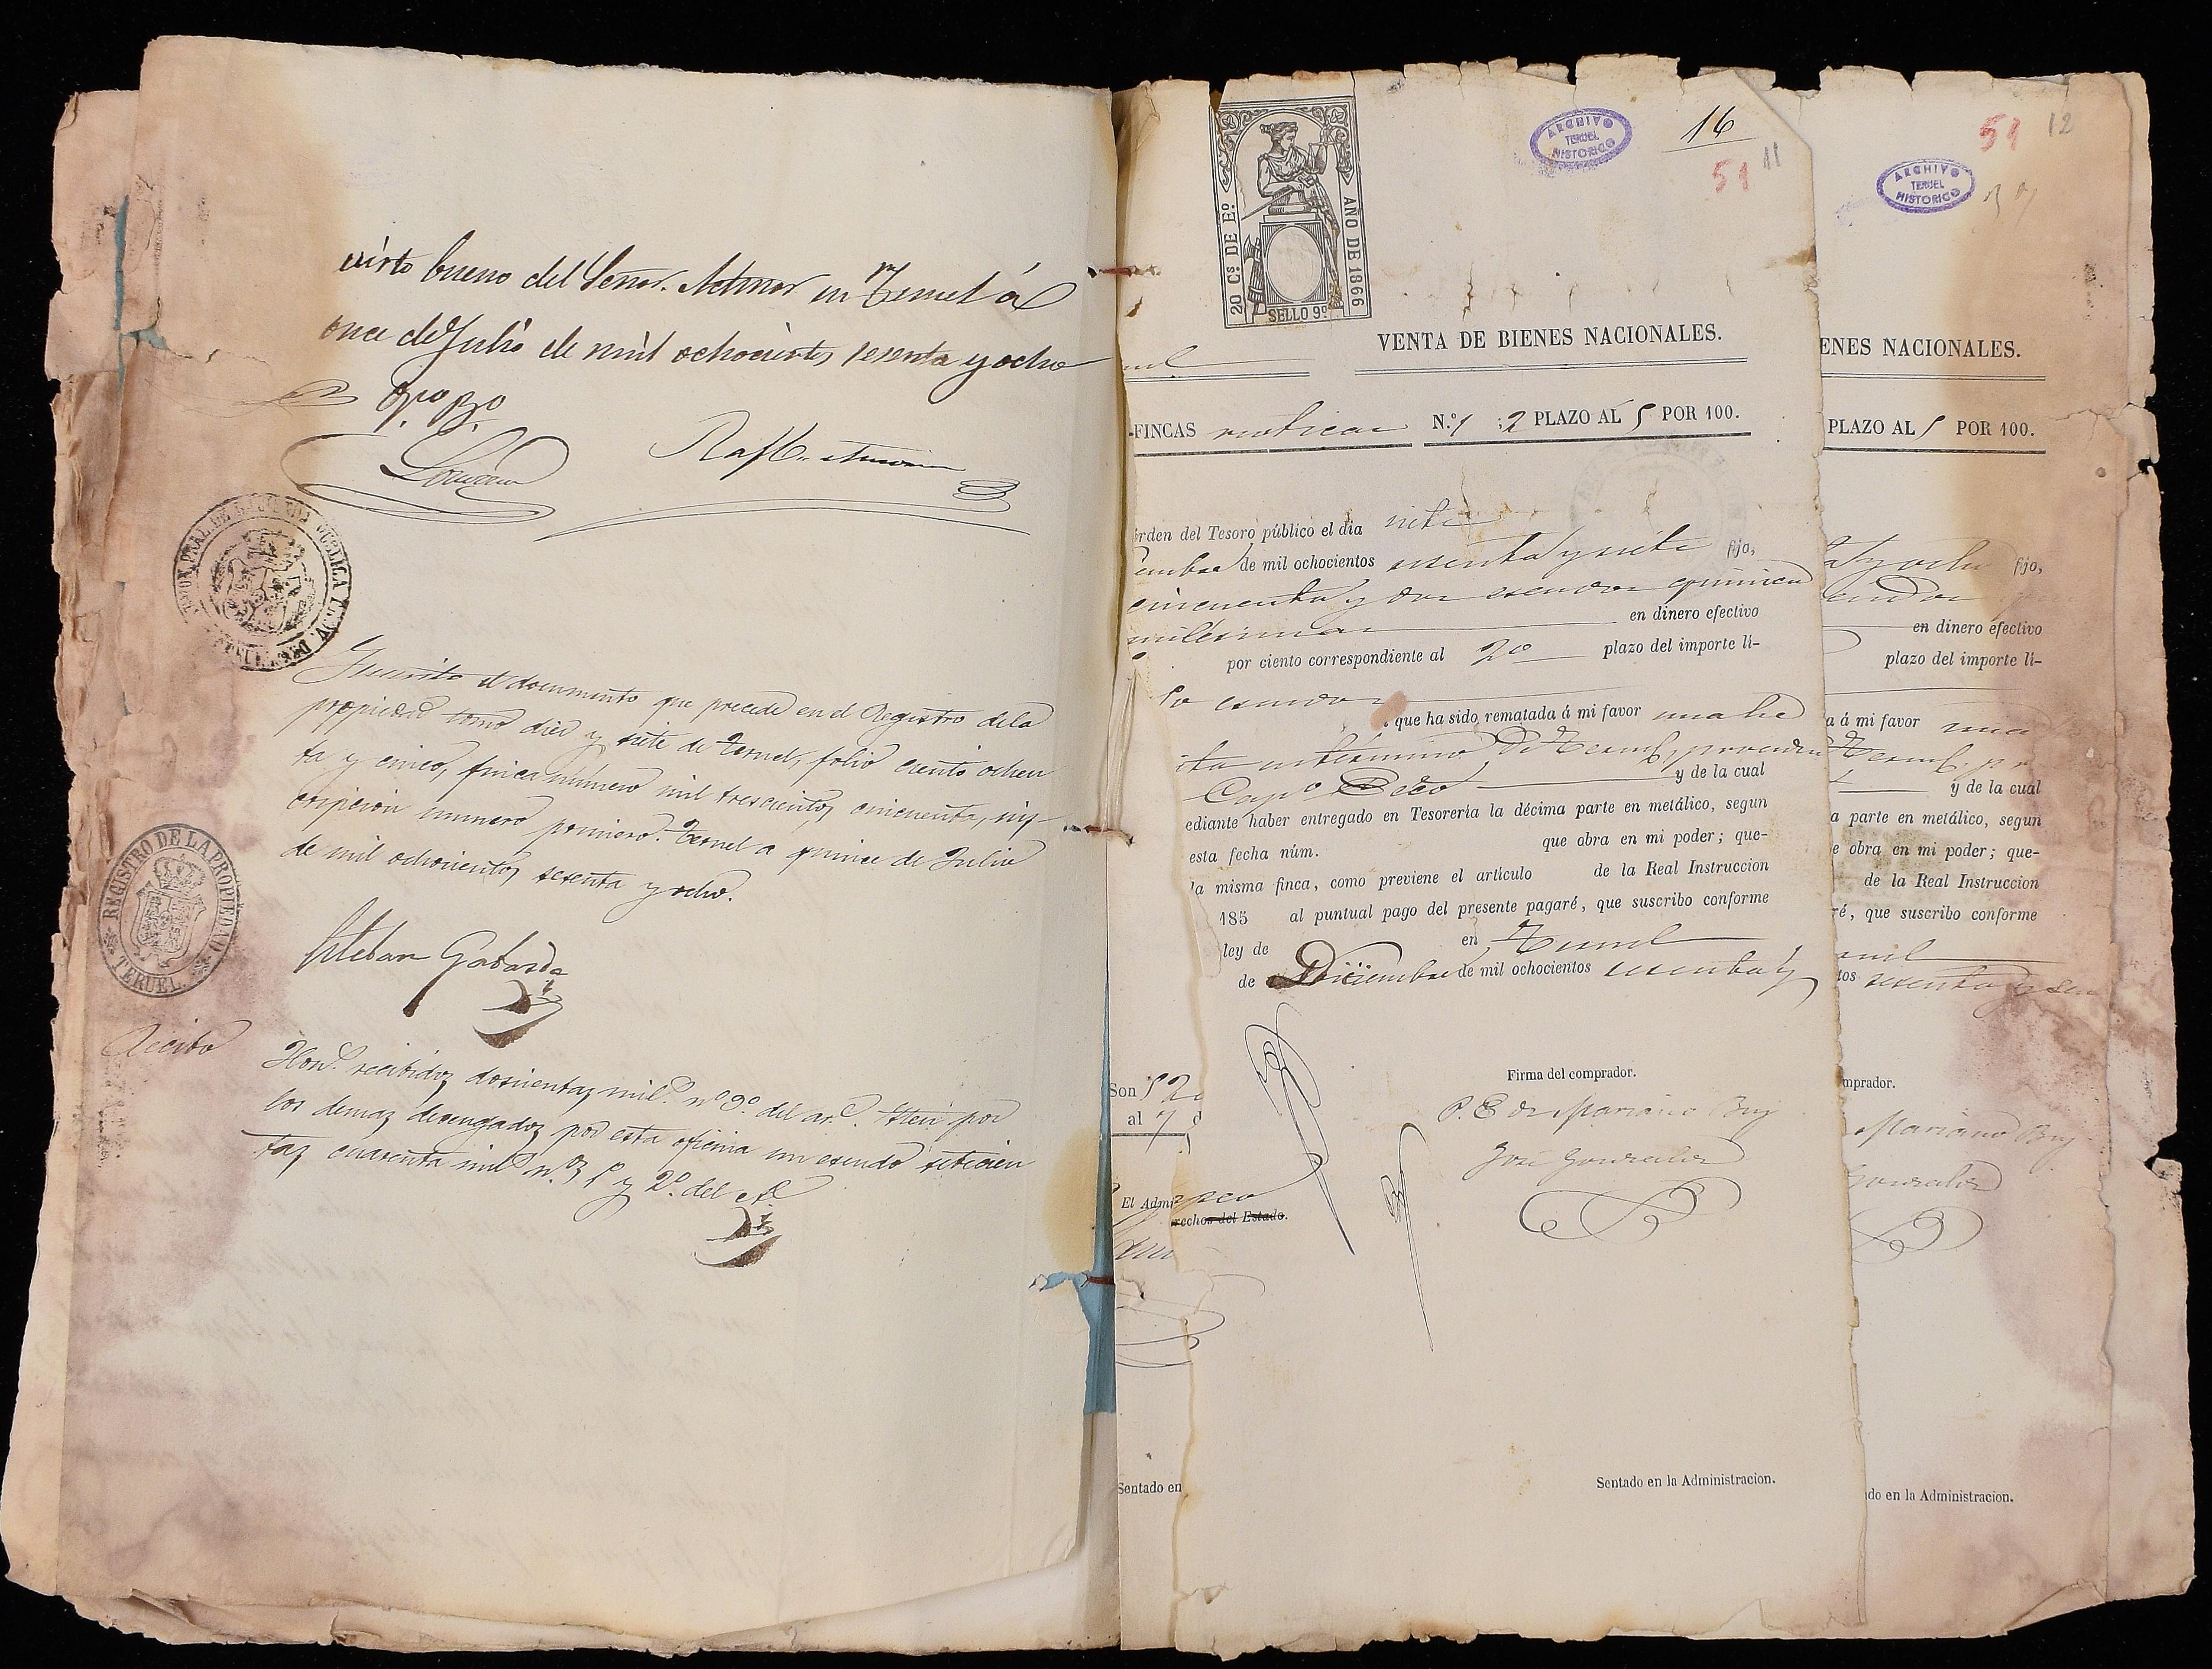 visto bueno del Señor. Admor en Teruel á
once de Julio de mil ochocientos sesenta y ocho
Vto Bo
TERUEL
Inscrito el documento que precede en el Registro dela
propiedad tomo diez y siete de Teruel, folio ciento ochen
ta y cinco, finca número mil trescientos cincuenta, ins-
cripcion numero primero. Teruel a quince de Julio
de mil ochocientos sesenta y ocho.
REGISTRO DE LA PROPIEDAD
TERUEL.
Esteban Gabarda
Recibo
Hons. recibidos doscientas mils. nº 9º del arl. Item por
los demas devengados por esta oficina un escudo setecien
tas cuarenta mils nos 1º y 2º del
20 Cs DE Eº.
AÑO DE 1866
SELLO 9º
ARCHIVO
TERUEL
HISTORICO
16
51 11
VENTA DE BIENES NACIONALES.
-FINCAS rusticas N.º 1 2 PLAZO AL 5 POR 100.
orden del Tesoro público el dia siete
embre de mil ochocientos sesenta y siete fijo,
cincuenta y dos escudos quinien
milésimas en dinero efectivo
por ciento correspondiente al 2º plazo del importe lí-
escudos
que ha sido rematada á mi favor una he
ita en termino de Teruel, proceden
Capº y de la cual
ediante haber entregado en Tesorería la décima parte en metálico, segun
esta fecha núm. que obra en mi poder; que-
la misma finca, como previene el artículo de la Real Instruccion
185 al puntual pago del presente pagaré, que suscribo conforme
ley de en Teruel
de Diciembre de mil ochocientos sesenta y
Firma del comprador.
P. E de Mariano Buj
José Gonzalez
Son 52
al 7
El Admi
rechos del Estado.
Sentado en
Sentado en la Administracion.
51 12
ARCHIVO
TERUEL
HISTORICO
ENES NACIONALES.
PLAZO AL 5 POR 100.
ta y ocho fijo,
en dinero efectivo
plazo del importe lí-
a á mi favor una
Teruel, pr
y de la cual
a parte en metálico, segun
e obra en mi poder; que-
de la Real Instruccion
ré, que suscribo conforme
uel
tos sesenta y seis
mprador.
Mariano Buj
Gonzalez
do en la Administracion.